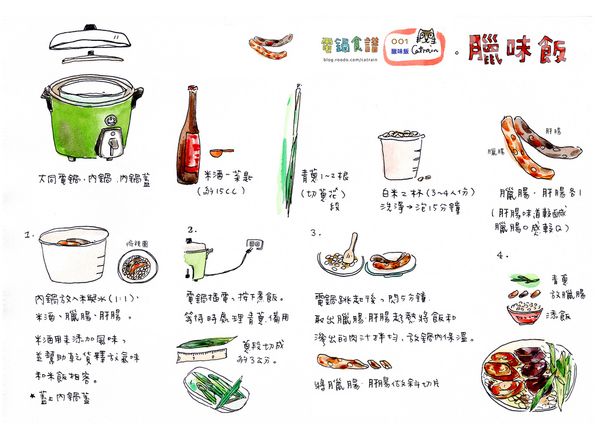 電鍋食譜
001
臘味飯
Catrain
blog.roodo.com/catrain
。臘味飯
大同電鍋、內鍋、內鍋蓋
米酒一茶匙
(約15CC)
青蔥1~2根
(切蔥花)
段
白米2杯(3~4人份)
洗淨→泡15分鐘
肝腸
臘腸
臘腸、肝腸各1
(肝腸味道較鹹
臘腸口感較Q)
1.
內鍋放入米與水(1:1)、
米酒、臘腸、肝腸。
米酒用來添加風味,
並幫助乾貨釋放氣味
和米飯相容。
*蓋上內鍋蓋
2.
電鍋插電、按下煮飯。
等待時處理青蔥備用
蔥段切成
約3公分。
3.
電鍋跳起後、悶5分鐘
取出臘腸、肝腸趁熱將飯和
滲出的肉汁拌均,放鍋內保溫。
將臘腸、肝腸依斜切片
4.
青蔥
放臘腸
添飯